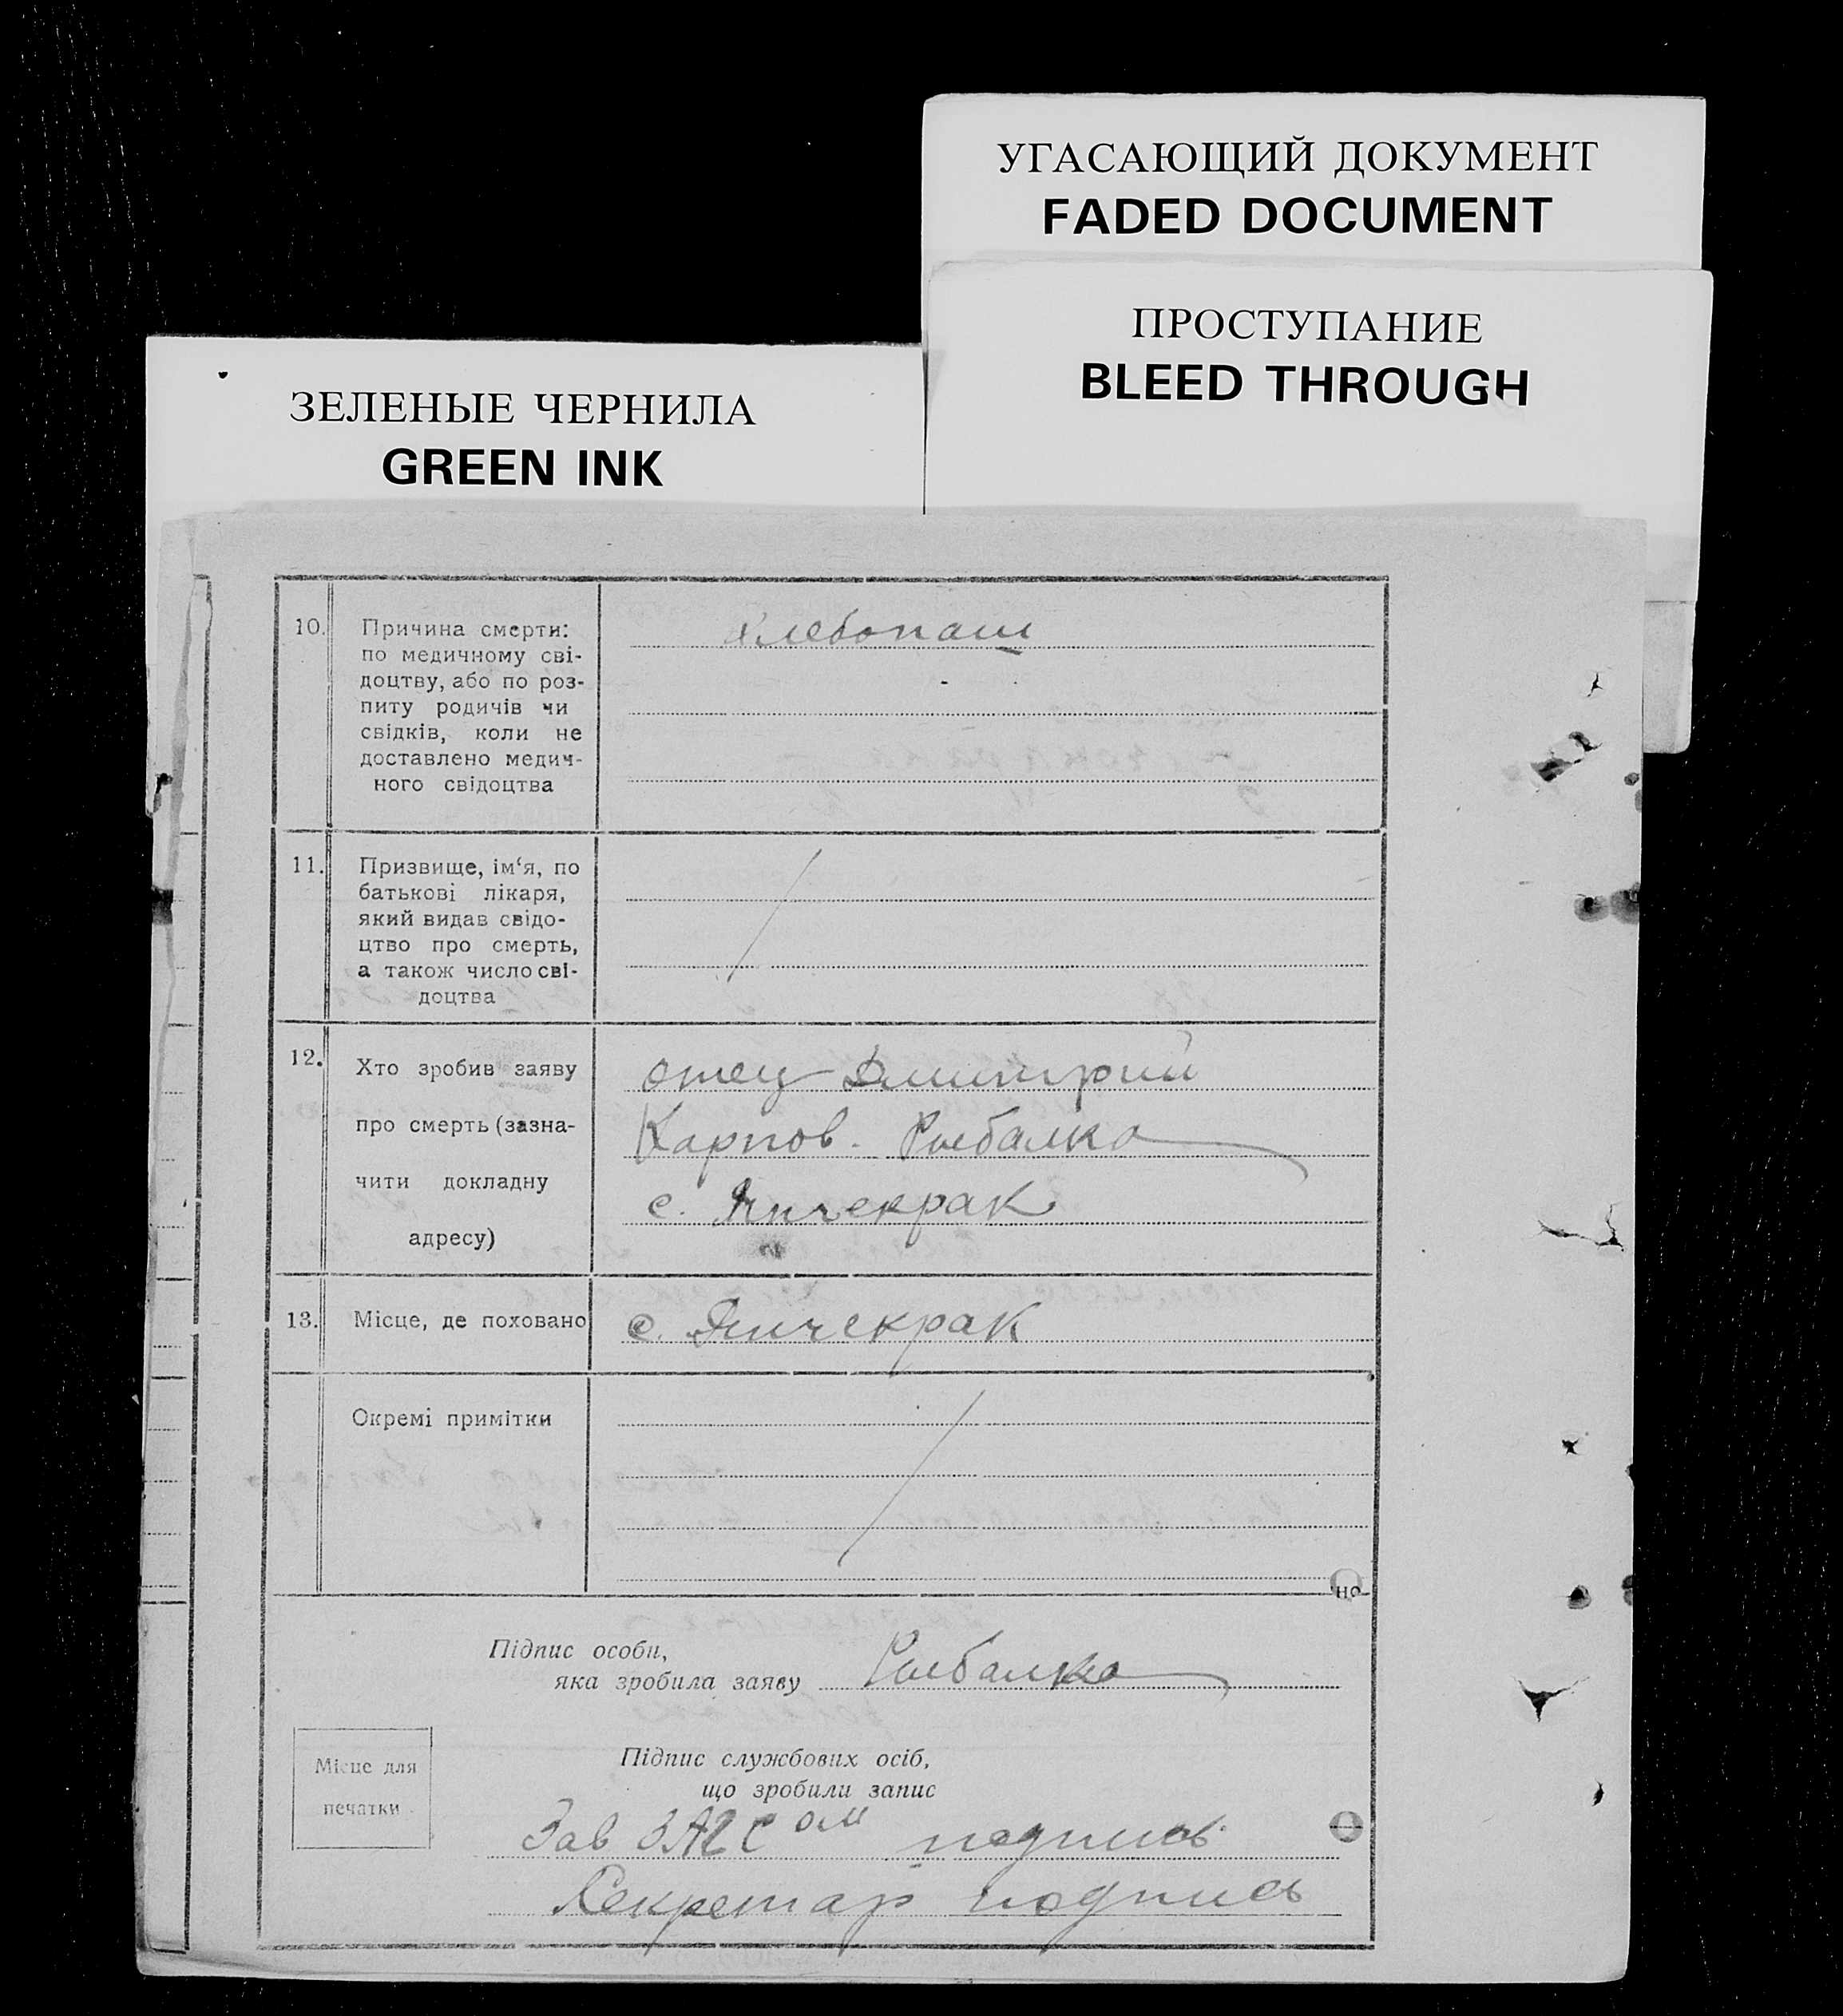 УГАСАЮЩИЙ ДОКУМЕНТ
FADED DOCUMENT
ПРОСТУПАНИЕ
BLEED THROUGH
ЗЕЛЕНЫЕ ЧЕРНИЛА
GREEN INK
10. Причина смерти:
по медичному сві-
доцтву, або по роз-
питу родичів чи
свідків, коли не
доставлено медич-
ного свідоцтва
хлебопаш
11. Призвище, ім‘я, по
батькові лікаря,
який видав свідо-
цтво про смерть,
а також число сві-
доцтва
12. Хто зробив заяву
про смерть (зазна-
чити докладну
адресу)
отец Дмитрий
Карпов. Рыбалка
с. Янчекрак
13. Місце, де поховано
с. Янчекрак
Окремі примітки
но-
Підпис особи,
яка зробила заяву Рыбалка
Місце для
печатки
Підпис службових осіб,
що зробили запис
Зав ЗАГСом подпись
Секретар подпись